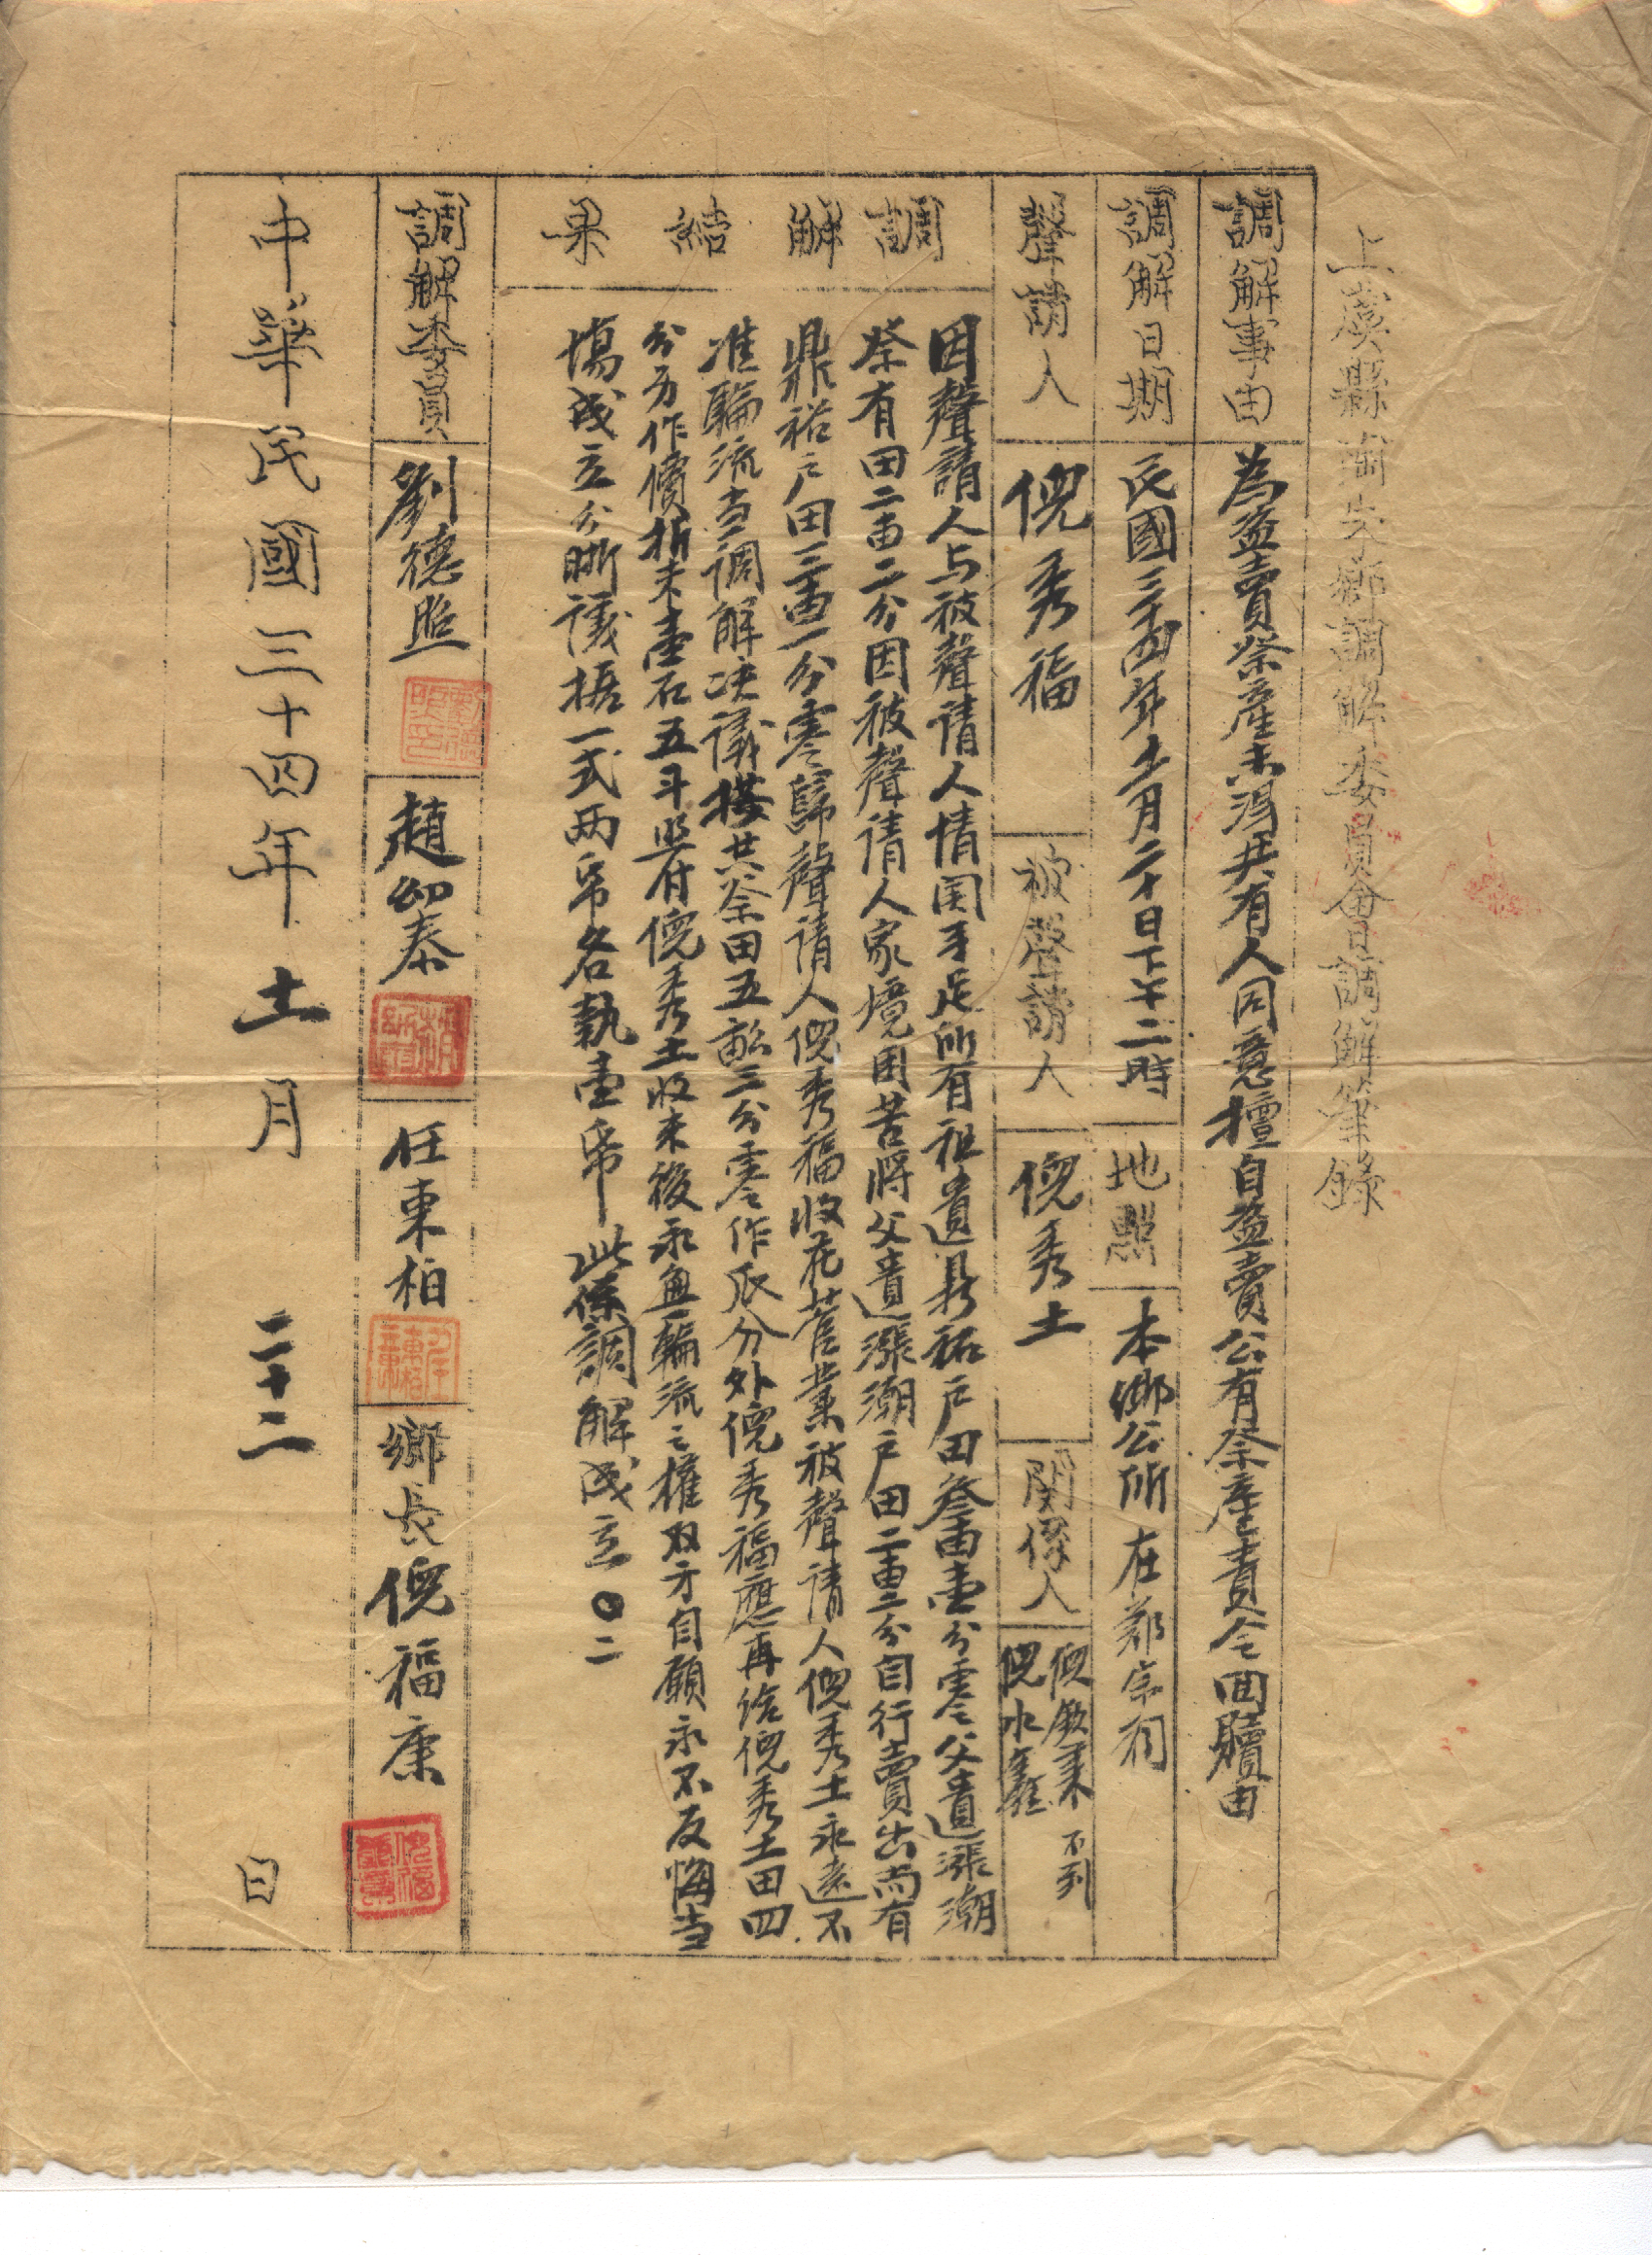 上虞縣潤夫鄉調解委員會調解筆錄
調解事由 為盜賣祭產未得共有人同意擅自盜賣公有祭產責令回贖由
調解日期 民國三十四年十一月二十日下午二時 地點 本鄉公所在鄭宗祠
聲請人 倪秀福 被聲請人 倪秀土 関係人 倪 倪水 不到
調解結果
因聲請人与被聲請人情関手足所有祖遺鼎裕戶田叁畝壹分零父遺漲潮
祭有田二畝二分因被聲請人家境困苦將父遺漲潮戶田二畝二分自行賣出尚有
鼎裕戶田三畝一分零歸聲請人倪秀福收花管業被聲請人倪秀土永遠不
准輪流当調解决議搭共祭田五畝三分零作瓜分外倪秀福應再給倪秀土田四
分另作價折米壹石五斗照付倪秀土收米後永無輪流之權双方自願永不反悔当
場成立分晰議据一式兩帋各執壹帋 此係調解成立〇二
調解委員 劉德照 趙幼泰 任東柏 鄉長 倪福康
中華民國三十四年十一月二十二日